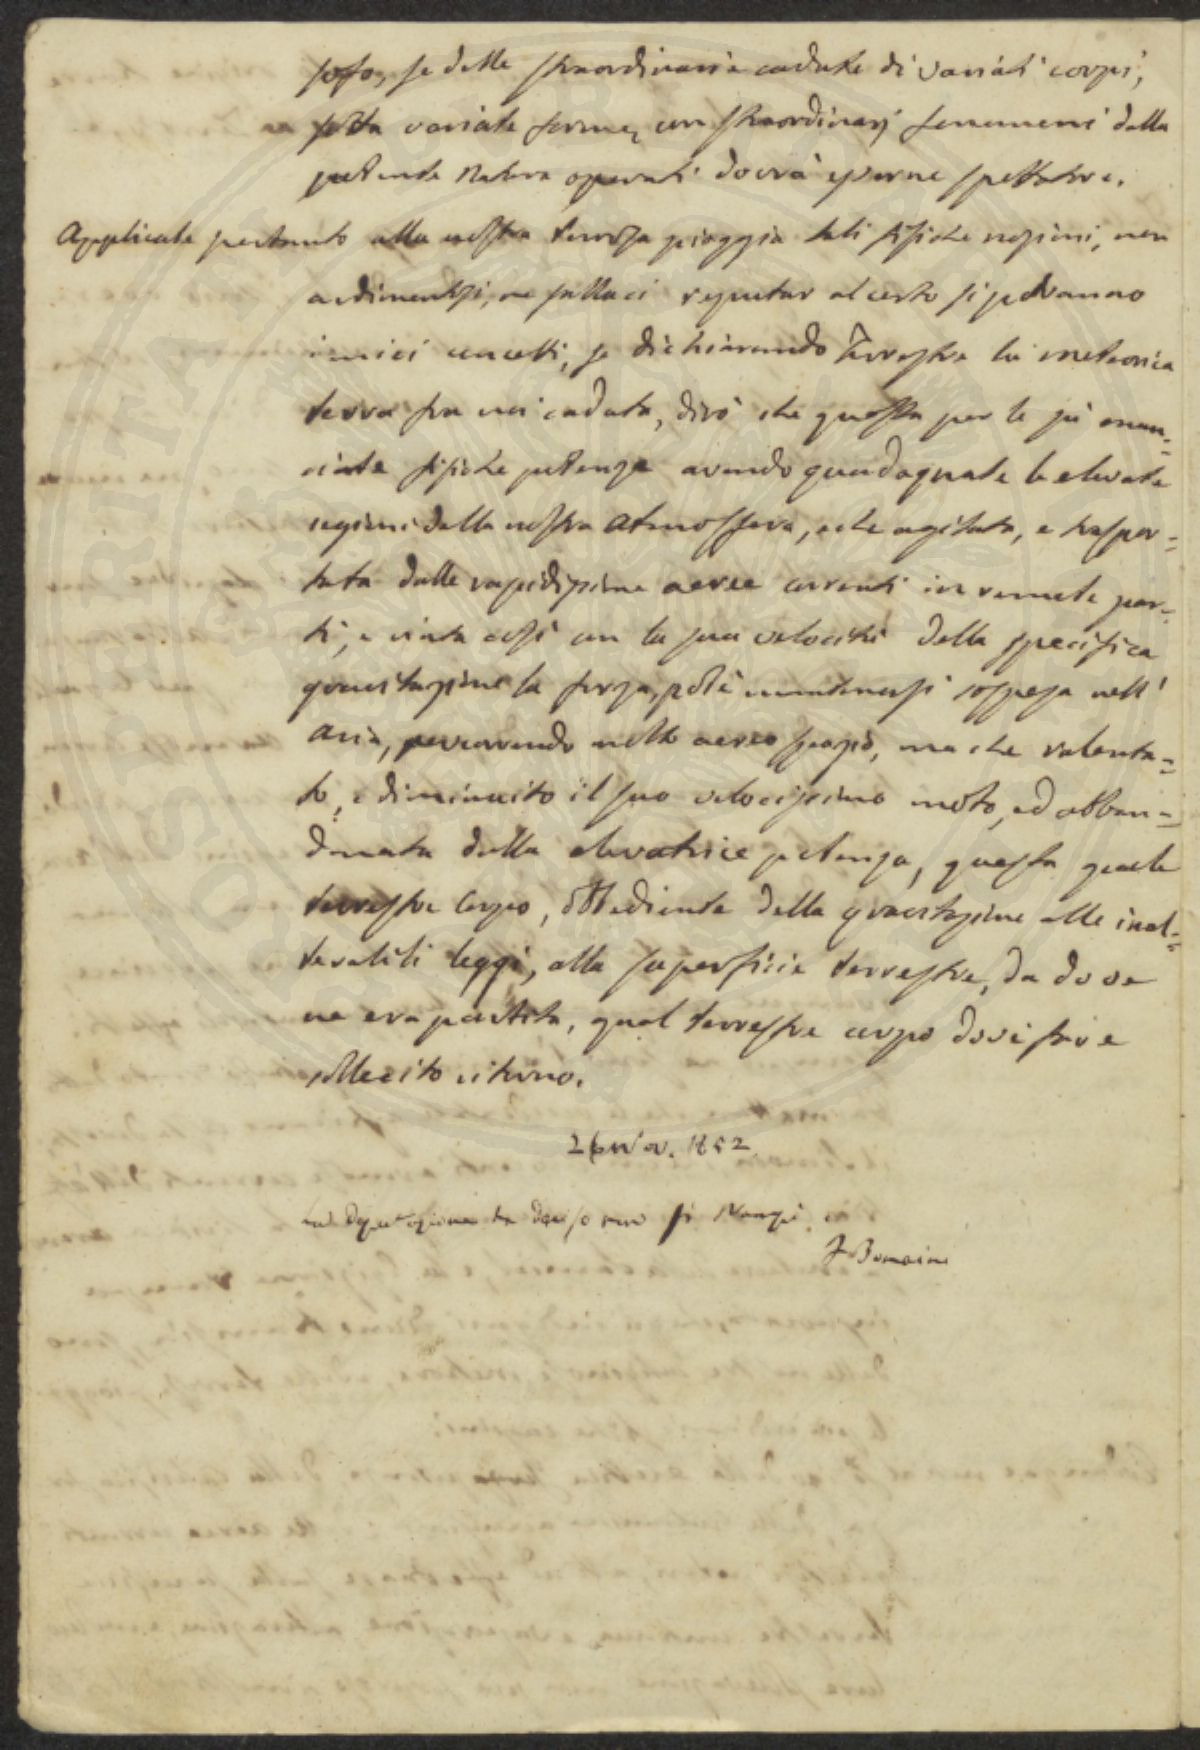 sofo, se delle straordinarie cadute di variati corpi,
sotto variate forme, con straordinarj fenomeni dalla
potente Natura operati dovrà esserne spettatore.
Applicate pertanto alla nostra terrosa pioggia tali fisiche nozioni, non
ardimentosi, ne fallaci reputar al certo si potranno
i miei concetti, se dichiarando Terrestre la meteorica
terra fra noi caduta, dirò che questa per le già enun=
ciate fisiche potenze avendo guadagnate le elevate
regioni della nostra Atmosfera, e che agitata, e traspor=
tata dalle rapidissime aeree correnti in remote par=
ti, e vinta così con la sua velocità della specifica
gravitazione la forza, potè mantenersi sospesa nell'
Aria, percorrendo nello aereo spazio, ma che ralenta=
to, e diminuito il suo velocissimo moto, ed abban=
donata dalla elevatrice potenza, questa quale
terrestre Corpo, obbediente della gravitazione alle inal=
terabili leggi, alla superficie terrestre, da dove
ne era partita, qual terrestre corpo dovè fare
sollecito ritorno.
26 Nov. 1852
La Deputazione ha deciso che si stampi